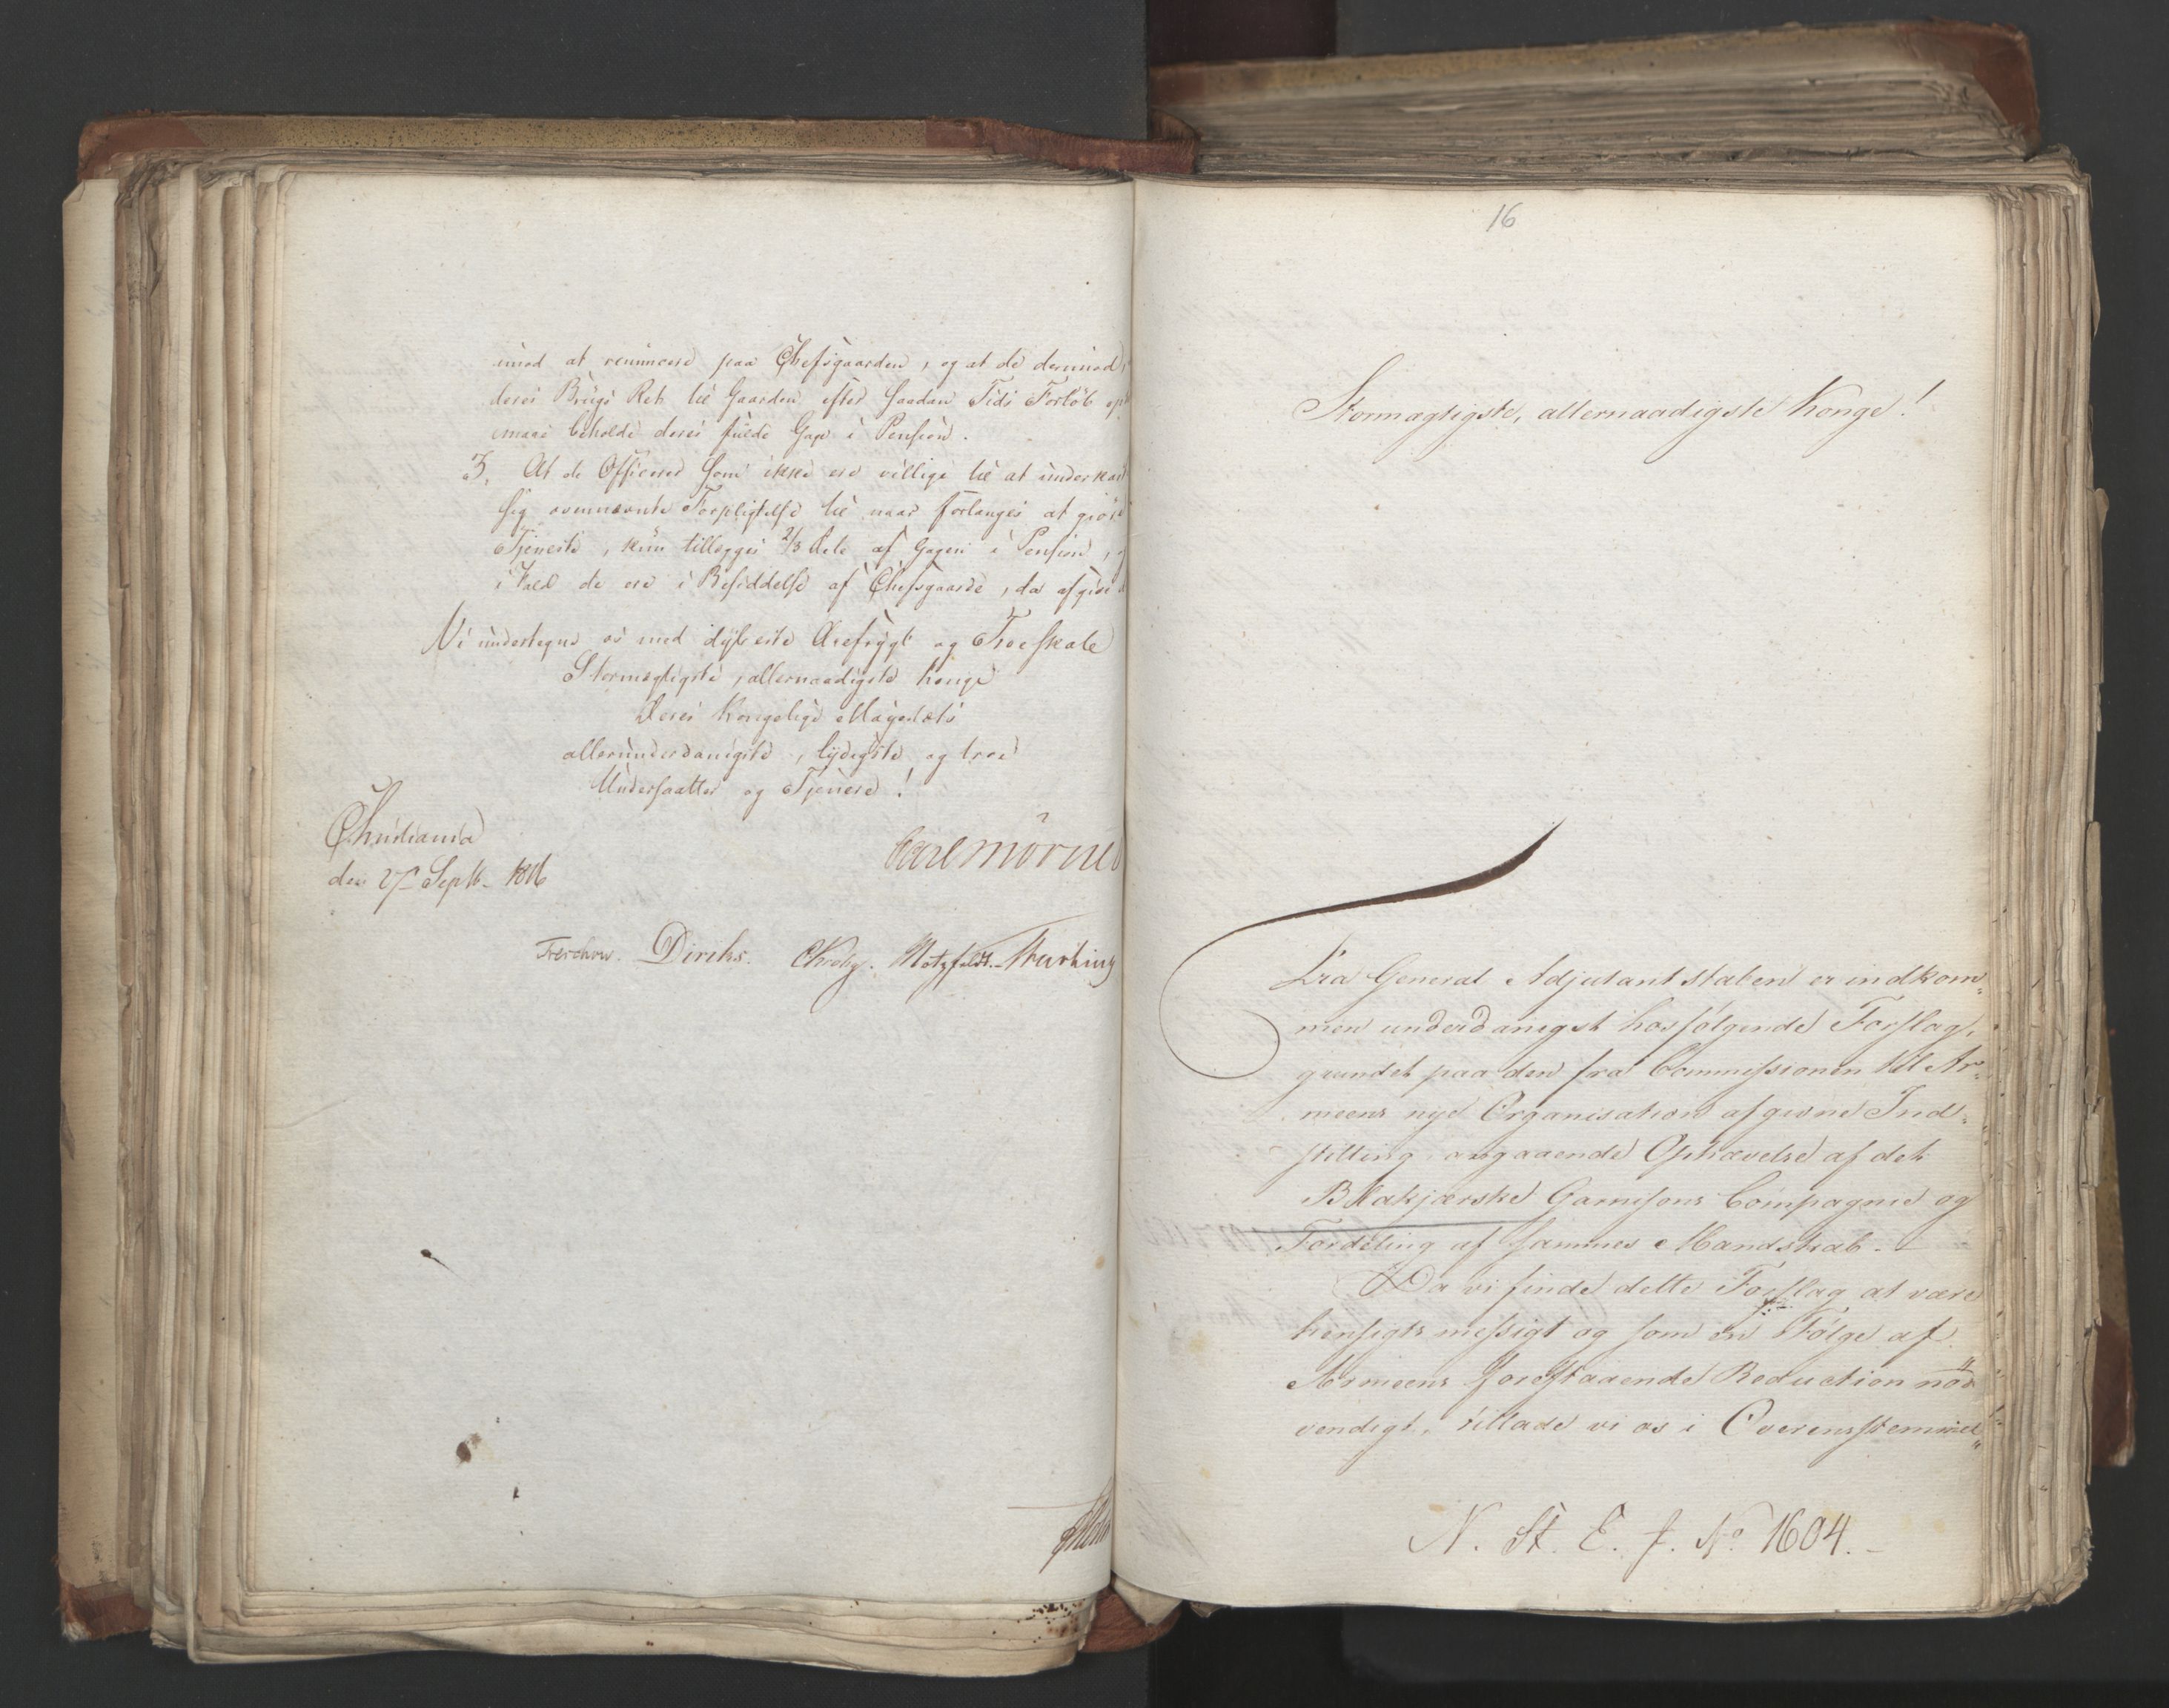 imod at renuncere paa Chefsgaarden, og at de derimod
deres Brugs Ret til Gaarden efter saadan Tids Forløb op
maae beholde deres fulde Gage i Pension.
3, At de Officerer som ikke ere villige til at underkas
sig ovennævnte Forpligtelse til naar forlanges at giøre
Tjeneste, kun tillægges 2/3 Dele af Gagen i Pension,
i Fald de ere i Besiddelse af Chefsgaarde, da afgive
Vi undertegne os med dybeste Ærefrygt og Troeskab
Stormægtigste, allernaadigste Konge
Deres Kongelige Majestæts
allerunderdanigste, lydigste og troe
Undersaatter og Tjenere!
Christiania
den 27de Septb. 1816
Carl Mörner
Treschow. Diriks. Krohg. Motzfeldt.
Holst
16
Stormægtigste, allernaadigste Konge!
Fra General Adjutantstaben er indkom-
men underdanigst hosfølgende Forslag,
grundet paa den fra Commissionen til Ar-
meens nye Organisation afgivne Ind-
stilling angaaende Ophævelse af det
Blakjærske Garnisons Compagnie og
Fordeling af sammes Mandskab. –
Da vi finde dette Forslag at være
hensigtsmessigt og som en Følge af
Armeens forestaaende Reduction nød
vendigt, tillade vi os i Overensstemmel
N. St. E. J. No 1604. –